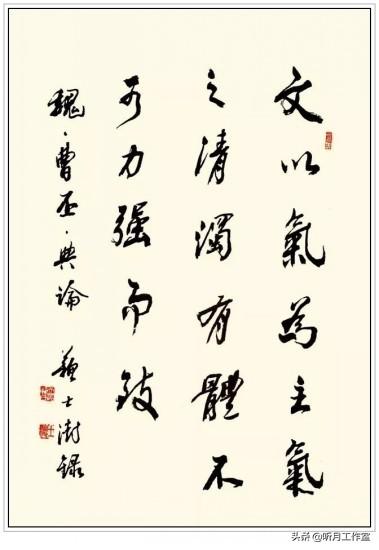 文以氣為主氣
之清濁有體不
可力強而致
魏·曹丕·典論 蘇士澍錄
头条 @听月工作室